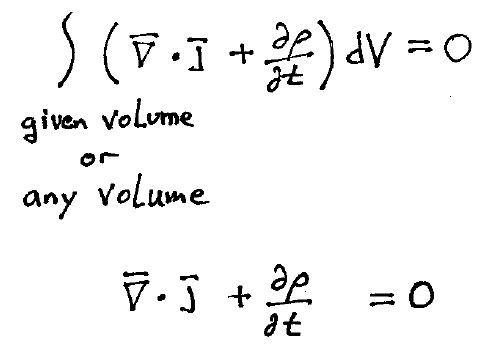 ∫ (∇̅ · J̅ + ∂ρ/∂t) dV = 0
given volume
or
any volume
∇̅ · J̅ + ∂ρ/∂t = 0